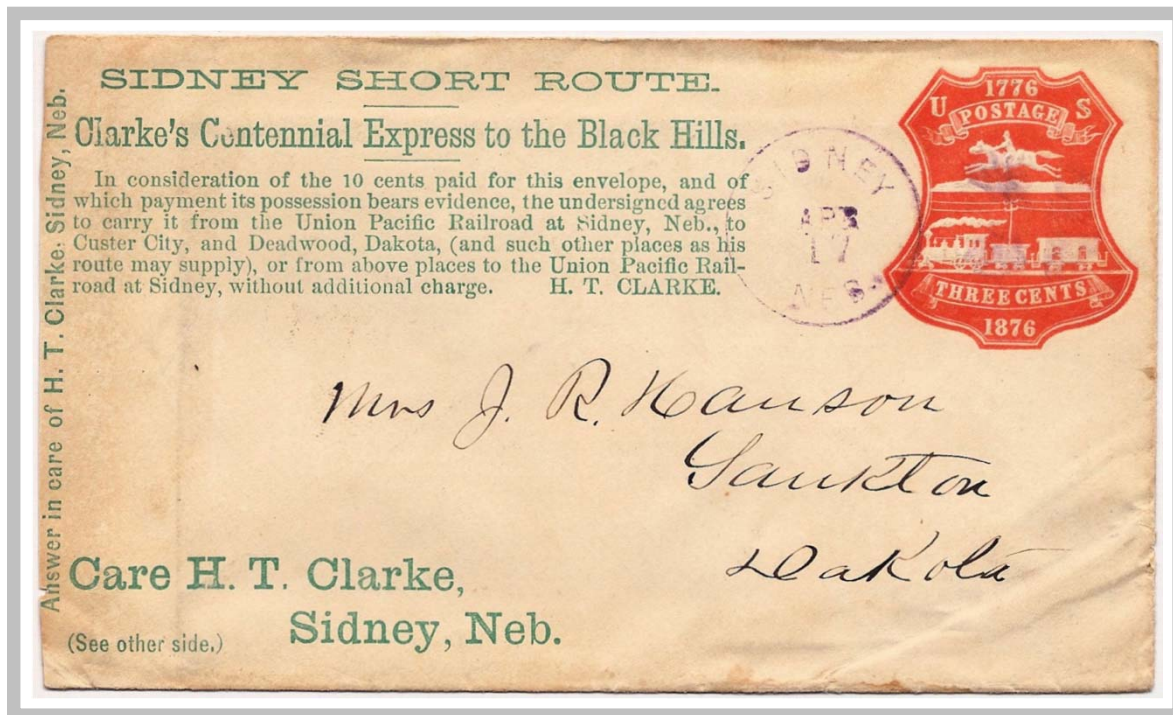 SIDNEY SHORT ROUTE.
Clarke's Centennial Express to the Black Hills.
In consideration of the 10 cents paid for this envelope, and of
which payment its possession bears evidence, the undersigned agrees
to carry it from the Union Pacific Railroad at Sidney, Neb., to
Custer City, and Deadwood, Dakota, (and such other places as his
route may supply), or from above places to the Union Pacific Rail-
road at Sidney, without additional charge. H. T. CLARKE.
Answer in care of H. T. Clarke, Sidney, Neb.
SIDNEY
APR
17
NEB.
1776
U S
POSTAGE
THREE CENTS
1876
Mrs J. R. Hanson
Yankton
Dakota
Care H. T. Clarke,
Sidney, Neb.
(See other side.)